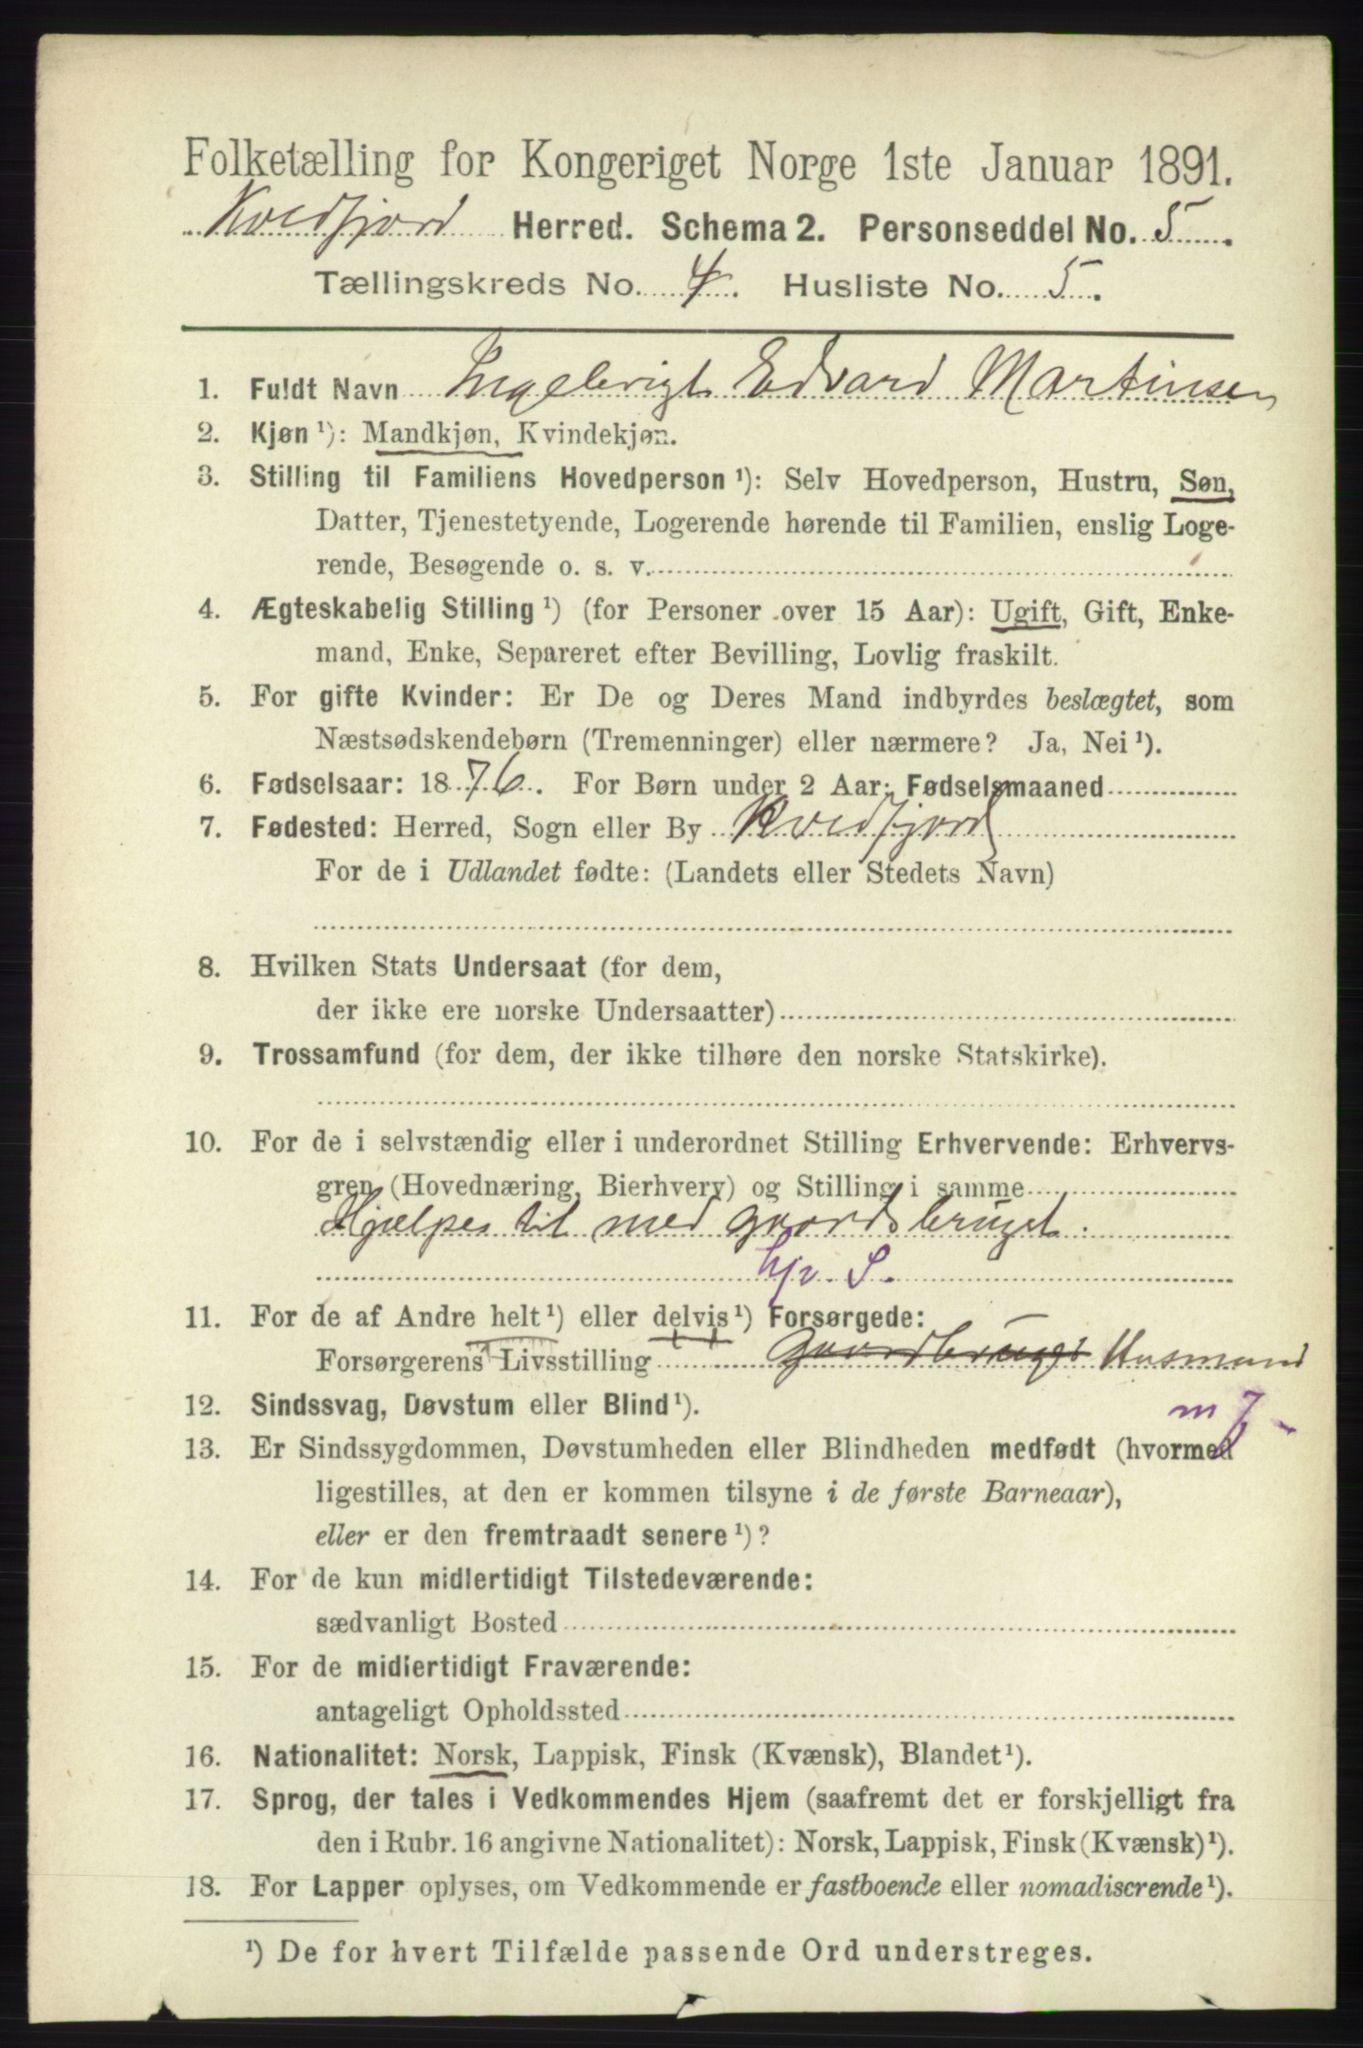 Folketælling for Kongeriget Norge 1ste Januar 1891.
Kvedfjord Herred. Schema 2. Personseddel No. 5.
Tællingskreds No. 4. Husliste No. 5.
1. Fuldt Navn Ingebrigt Edvard Martinsen
2. Kjøn ¹): Mandkjøn, Kvindekjøn.
3. Stilling til Familiens Hovedperson ¹): Selv Hovedperson, Hustru, Søn,
Datter, Tjenestetyende, Logerende hørende til Familien, enslig Loge-
rende, Besøgende o. s. v.
4. Ægteskabelig Stilling ¹) (for Personer over 15 Aar): Ugift, Gift, Enke-
mand, Enke, Separeret efter Bevilling, Lovlig fraskilt.
5. For gifte Kvinder: Er De og Deres Mand indbyrdes beslægtet, som
Næstsødskendebørn (Tremenninger) eller nærmere? Ja, Nei ¹).
6. Fødselsaar: 1876. For Børn under 2 Aar: Fødselsmaaned
7. Fødested: Herred, Sogn eller By Kvedfjord
For de i Udlandet fødte: (Landets eller Stedets Navn)
8. Hvilken Stats Undersaat (for dem,
der ikke ere norske Undersaatter)
9. Trossamfund (for dem, der ikke tilhøre den norske Statskirke).
10. For de i selvstændig eller i underordnet Stilling Erhvervende: Erhvervs-
gren (Hovednæring, Bierhverv) og Stilling i samme
Hjælper til med gaardsbruget.
hjv. S.
11. For de af Andre helt ¹) eller delvis ¹) Forsørgede:
Forsørgerens Livsstilling Gaardbruger Husmand
12. Sindssvag, Døvstum eller Blind ¹).
m J -
13. Er Sindssygdommen, Døvstumheden eller Blindheden medfødt (hvormed
ligestilles, at den er kommen tilsyne i de første Barneaar),
eller er den fremtraadt senere ¹)?
14. For de kun midlertidigt Tilstedeværende:
sædvanligt Bosted
15. For de midlertidigt Fraværende:
antageligt Opholdssted
16. Nationalitet: Norsk, Lappisk, Finsk (Kvænsk), Blandet ¹).
17. Sprog, der tales i Vedkommendes Hjem (saafremt det er forskjelligt fra
den i Rubr. 16 angivne Nationalitet): Norsk, Lappisk, Finsk (Kvænsk) ¹).
18. For Lapper oplyses, om Vedkommende er fastboende eller nomadiserende ¹).
¹) De for hvert Tilfælde passende Ord understreges.